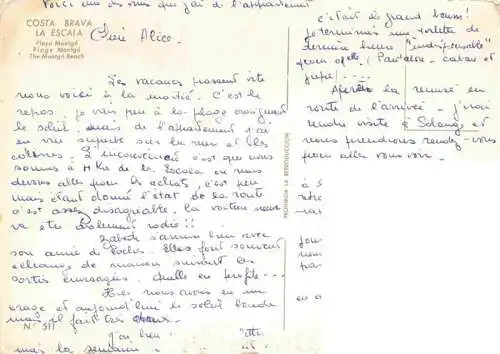 Voici une vue que j'ai de l'appartement
COSTA BRAVA
LA ESCALA
Playa Montgó
Plage Montgó
The Montgó Beach
Chère Alice.
Les vacances passent vite
nous voici à la moitié. C'est le
repos. Je vais peu à la plage craignant
le soleil mais de l'appartement j'ai
une vue superbe sur la mer et les
collines. L'inconvénient c'est que nous
sommes à 4 Km de la Escala où nous
devons aller pour les achats, c'est peu
mais étant donné l'état de la route
c'est assez désagréable. La voiture neuve
va être drôlement rodée !!
s'amuse bien avec
son amie de Elles font souvent
échange de maison suivant les
sorties envisagées. Quelle en profite ---
Hier nous avons eu un
orage et aujourd'hui le soleil boude
mais il fait très doux.
N.° 511
j'ai bien
mais la semaine
c'était le grand boum !
je terminais une toilette de
dernière heure "indispensable"
pour elle (Pantalon - caban et
jupe).
Après la remise en
route de l'arrivée - j'irai
rendre visite à Solange et
nous prendrons rendez-vous
pour aller vous voir.
PROHIBIDA LA REPRODUCCION
à S
notre
mas
jou
nou
pa
en a